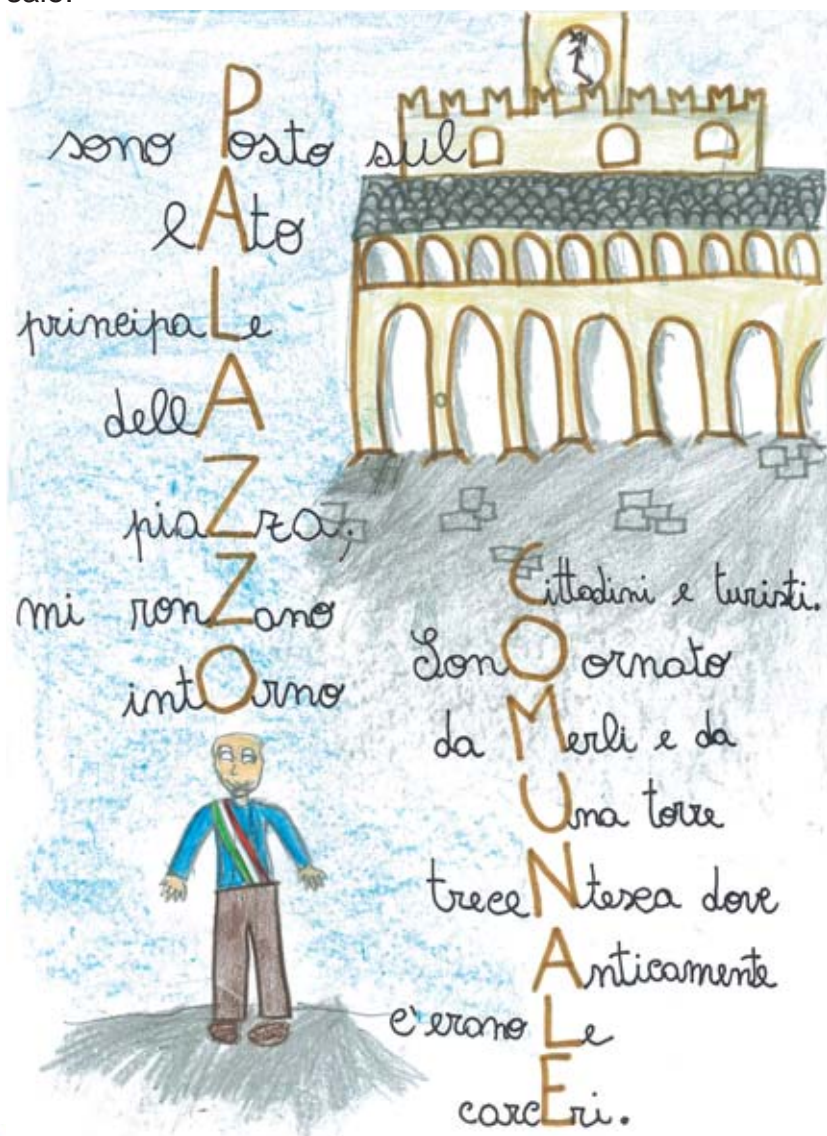 sono Posto sul
lAto
principaLe
dellA
piaZza;
mi ronZano
intOrno
Cittadini e turisti.
SonO ornato
da Merli e da
Una torre
treceNtesca dove
Anticamente
c'erano Le
carcEri.